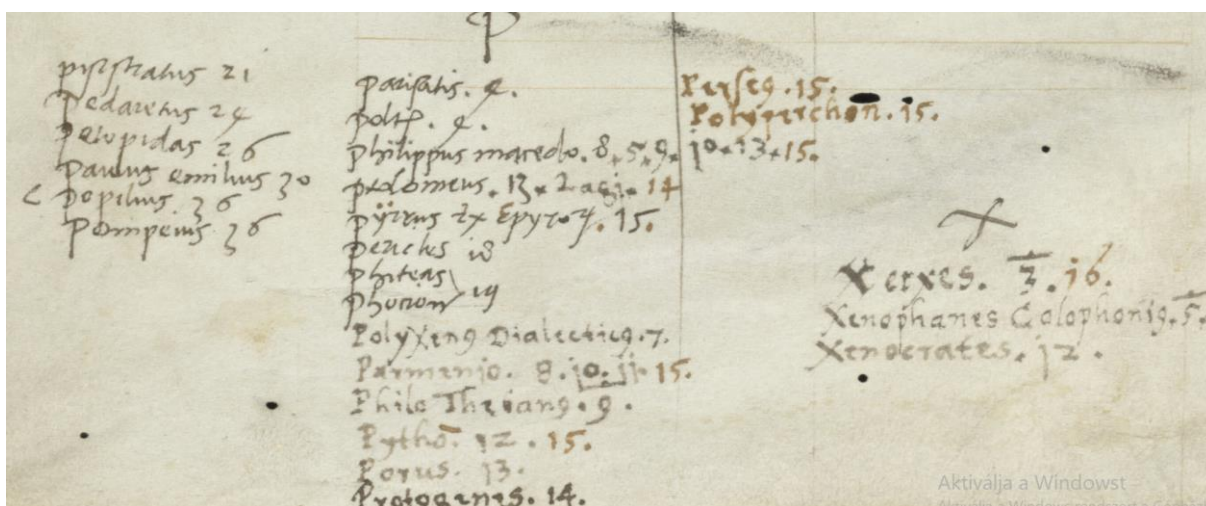 P
pisistratus 21
Pedaretus 24
Pelopidas 26
Paulus emilius 30
Popilius 36
Pompeius 36
parisatis. 4.
polt. 4.
philippus macedo. 8. 5. 9. 10. 13. 15.
ptolomeus. 13. Lagi. 14
pÿrrus Epyrotꝝ. 15.
pericles 18
phiteas
phocion 19
Polyxenꝯ Dialecticꝯ. 7.
Parmenio. 8. 10. 11. 15.
Philo Thebanꝯ. 9.
Pytho. 12. 15.
Porus. 13.
Protogenes. 14.
Perseꝯ. 15.
Polyperchon. 15.
X
Xerxes. 3. 16.
Xenophanes Colophoniꝯ. 5.
Xenocrates. 12.
Aktiválja a Windowst